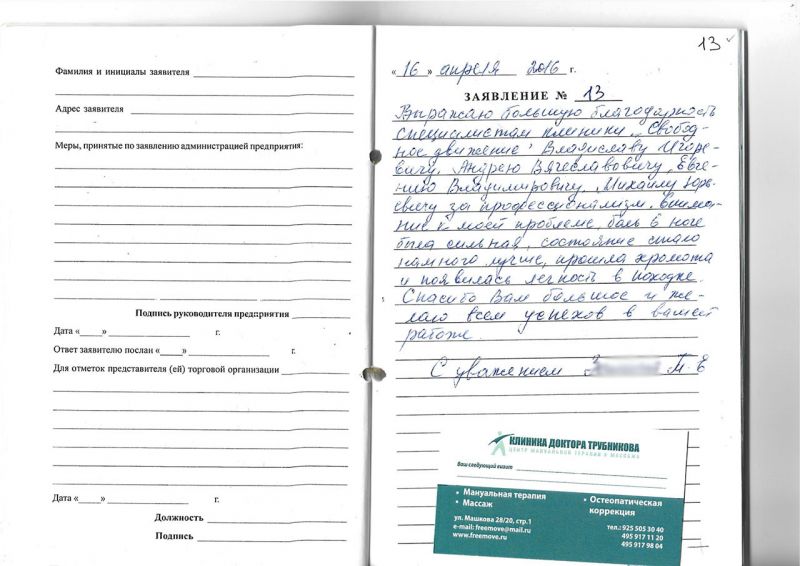 Фамилия и инициалы заявителя
Адрес заявителя
Меры, принятые по заявлению администрацией предприятия:
Подпись руководителя предприятия
Дата «____» г.
Ответ заявителю послан «____» г.
Для отметок представителя (ей) торговой организации
Дата «____» г.
Должность
Подпись
13
« 16 » апреля 2016 г.
ЗАЯВЛЕНИЕ № 13
Выражаю большую благодарность
специалистам клиники „Свобод-
ное движение" Владиславу Игоре-
вичу, Андрею Вячеславовичу, Евге-
нию Владимировичу, Михаилу Юрь-
евичу за профессионализм, внима-
ние к моей проблеме, боль в ноге
была сильная, состояние стало
намного лучше, прошла хромота
и появилась легкость в походке.
Спасибо Вам большое и же-
лаю всем успехов в вашей
работе.
С уважением З Т.Е
КЛИНИКА ДОКТОРА ТРУБНИКОВА
ЦЕНТР МАНУАЛЬНОЙ ТЕРАПИИ И МАССАЖА
Ваш следующий визит
• Мануальная терапия
• Массаж
• Остеопатическая
коррекция
ул. Машкова 28/20, стр.1
e-mail: freemove@mail.ru
www.freemove.ru
тел.: 925 505 30 40
495 917 11 20
495 917 98 04